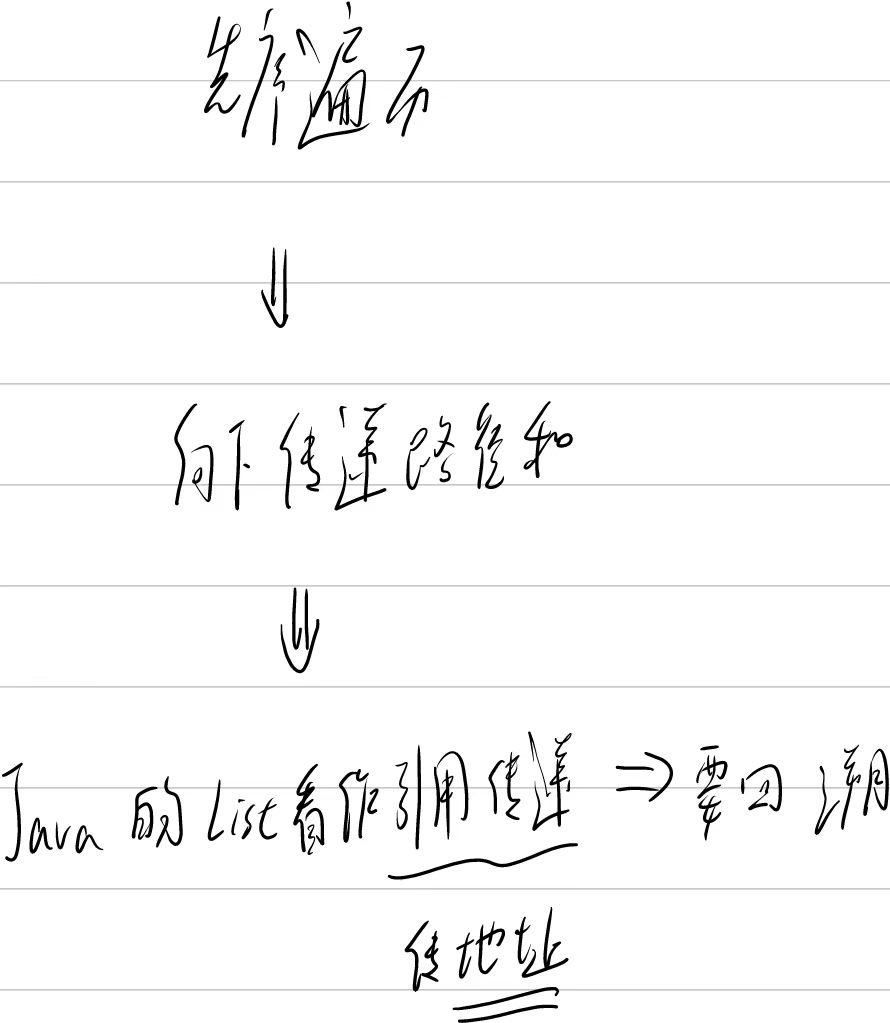 先序遍历
⇓
向下传递路径和
⇓
Java 的 List 看作引用传递 ⇒ 要回溯
传地址